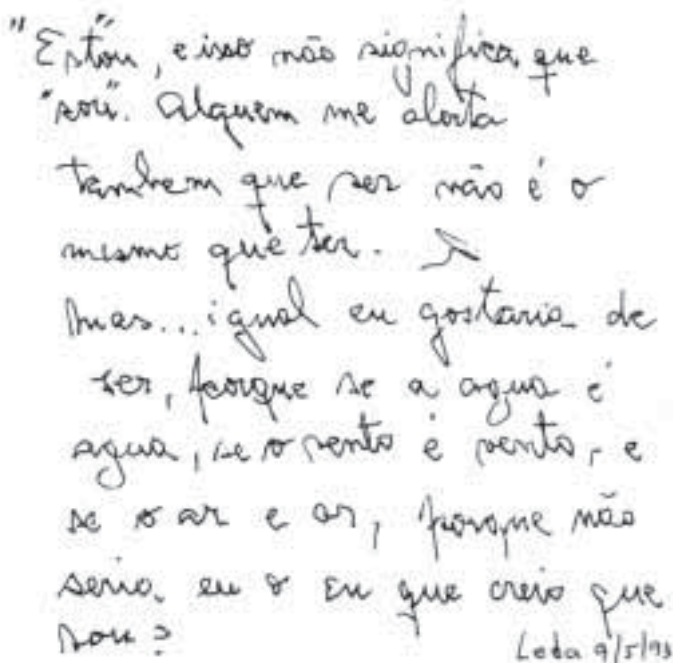 "Estou", e isso não significa que
"sou". Alguem me alerta
tambem que ser não é o
mesmo que ter.
Mas... igual eu gostaria de
ser, porque se a agua é
agua, se o vento é vento, e
se o ar e ar, porque não
seria eu o Eu que creio que
sou?
Leda 9/5/93